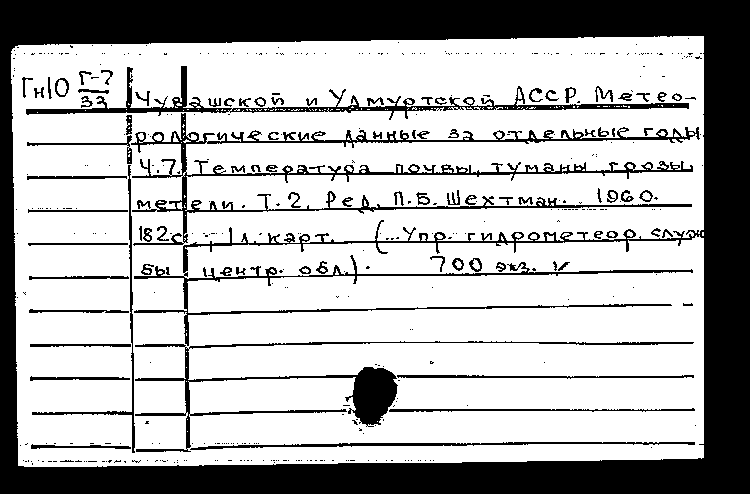 Гн10 Г-7/33 Чувашской и Удмуртской АССР. Метео-
рологические данные за отдельные годы
Ч.7. Температура почвы, туманы, грозы,
метели. Т.2. Ред. П.Б. Шехтман. 1960.
182с.; 1 л. карт. (...Упр. гидрометеор. служ
бы центр. обл.). 700 экз.